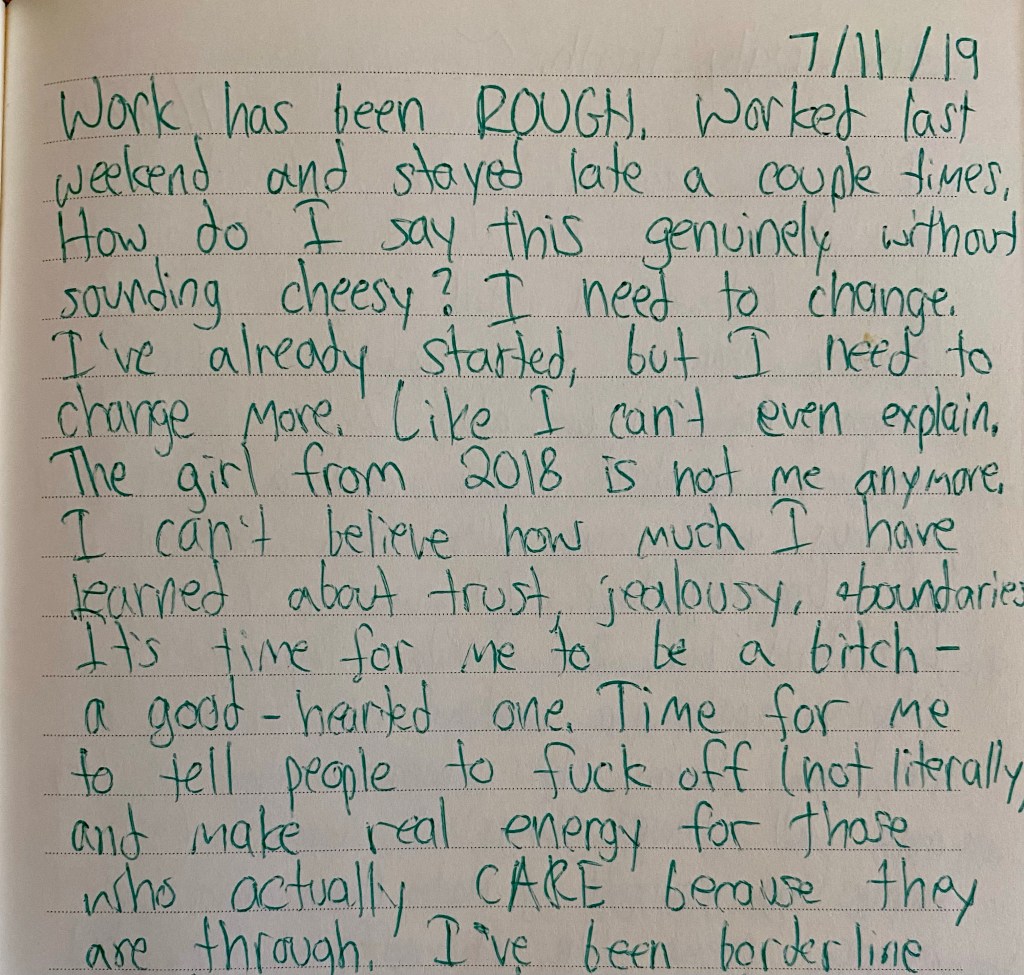 7/11/19
Work has been ROUGH. Worked last
weekend and stayed late a couple times.
How do I say this genuinely without
sounding cheesy? I need to change.
I've already started, but I need to
change more. Like I can't even explain.
The girl from 2018 is not me anymore.
I can't believe how much I have
learned about trust, jealousy, + boundaries
It's time for me to be a bitch -
a good-hearted one. Time for me
to tell people to fuck off (not literally)
and make real energy for those
who actually CARE because they
are through. I've been borderline